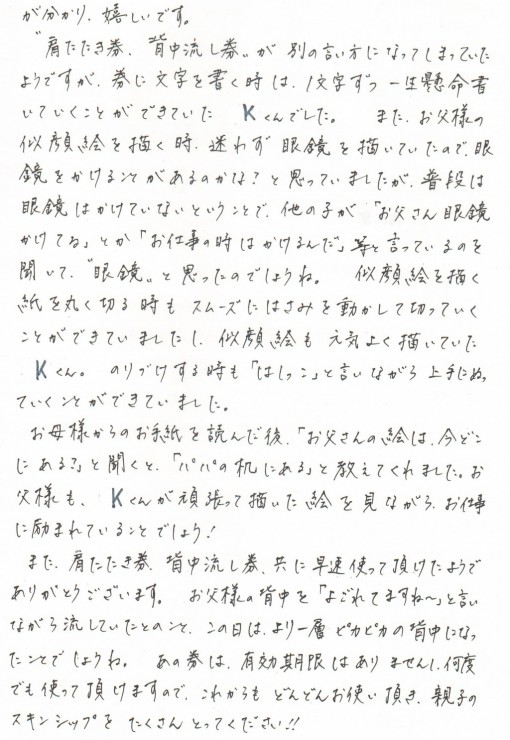 が分かり、嬉しいです。
"肩たたき券、背中流し券"が別の言い方になってしまっていた
ようですが、券に文字を書く時は、1文字ずつ一生懸命書
いていくことができていた Kくんでした。 また、お父様の
似顔絵を描く時、迷わず眼鏡を描いていたので、眼
鏡をかけることがあるのかな?と思っていましたが、普段は
眼鏡はかけていないということで、他の子が、「お父さん眼鏡
かけてる」とか「お仕事の時はかけるんだ」等と言っているのを
聞いて、"眼鏡"と思ったのでしょうね。 似顔絵を描く
紙を丸く切る時もスムーズにはさみを動かして切っていく
ことができていましたし、似顔絵も元気よく描いていた
Kくん。 のりづけする時も「はしっこ」と言いながら上手にぬっ
ていくことができていました。
お母様からのお手紙を読んだ後、「お父さんの絵は、今どこ
にある?」と聞くと、「パパの机にある」と教えてくれました。お
父様も、Kくんが頑張って描いた絵を見ながら、お仕事
に励まれていることでしょう!
また、肩たたき券、背中流し券、共に早速使って頂けたようで
ありがとうございます。 お父様の背中を「よごれてますね〜」と言い
ながら流していたとのこと、この日は、より一層ピカピカの背中になっ
たことでしょうね。 あの券は、有効期限はありませんし、何度
でも使って頂けますので、これからもどんどんお使い頂き、親子の
スキンシップをたくさんとってください!!